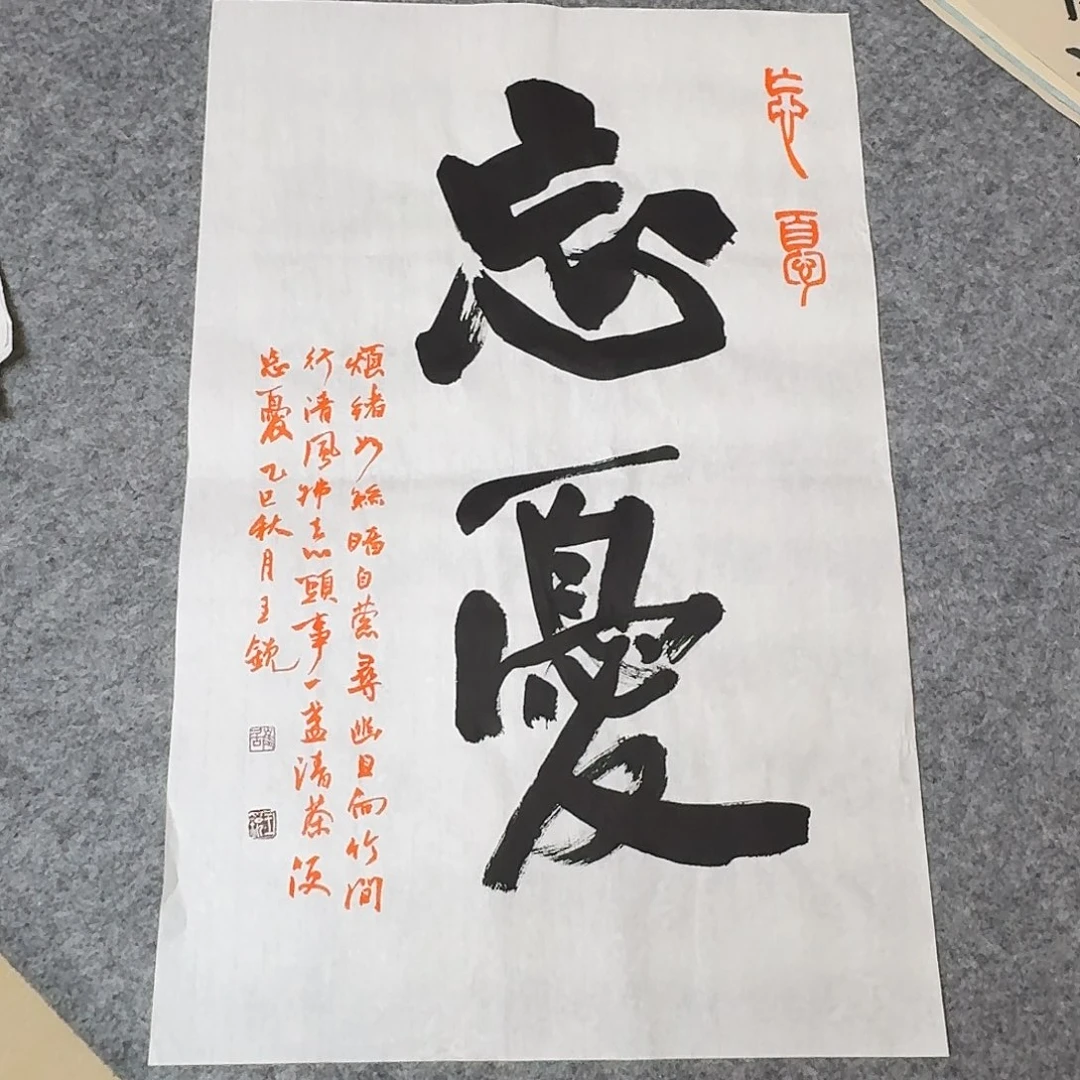 忘憂
忘憂
煩緒如絲暗自縈尋幽且向竹間
行清風拂去心頭事一盞清茶便
忘憂乙巳秋月王銳